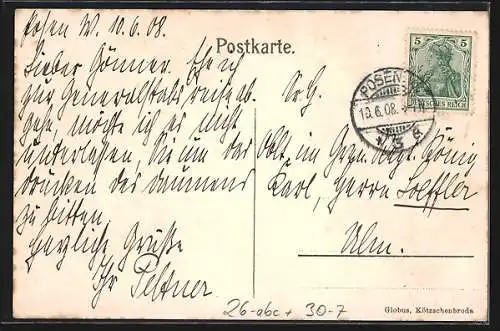 Posen W. 10.6.08.
Lieber Gönner. Ehe ich
zur Generalstabsreise ab-
gehe, möchte ich es nicht
unterlassen, Sie um das
drücken des daumens
zu bitten.
Herzliche Grüße
Ihr
Postkarte.
5 5
DEUTSCHES REICH
POSEN
10.6.08.
S. H.
Oblt. im Gren. Regt. König
Karl, Herrn Loeffler
Ulm.
26-abc + 30-7
Globus, Kötzschenbroda